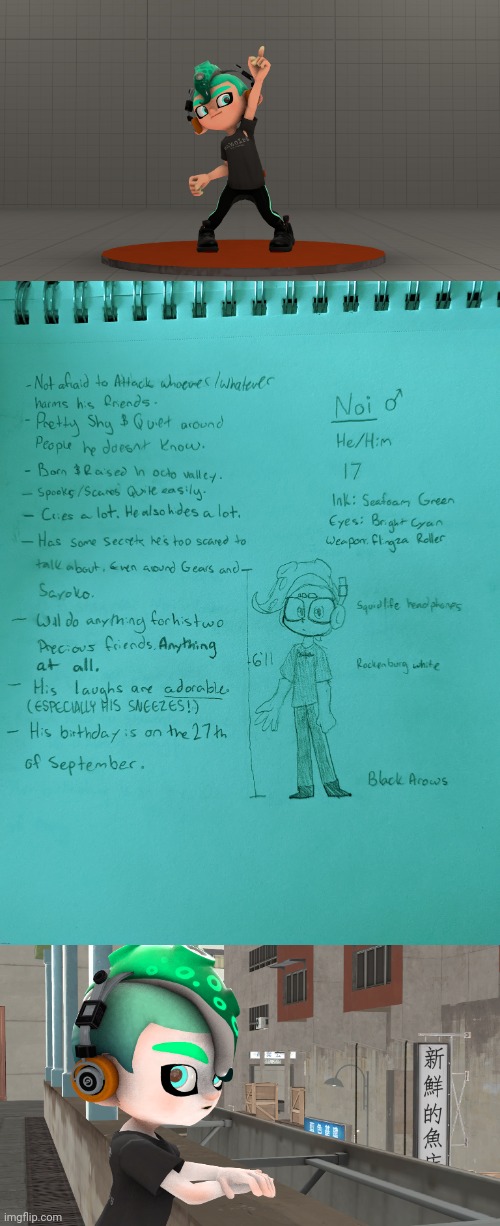 - Not afraid to Attack whoever/whatever
harms his friends.
- Pretty Shy & Quiet around
People he doesn't know.
- Born & Raised in octo valley.
- Spooks/Scares Quite easily.
- Cries a lot. He also hides a lot.
- Has some secrets he's too scared to
talk about. Even around Gears and
Sayoko.
- Will do anything for his two
Precious friends. Anything
at all.
- His laughs are adorable.
(ESPECIALLY HIS SNEEZES!)
- His birthday is on the 27th
of September.
Noi ♂
He/Him
17
Ink: Seafoam Green
Eyes: Bright Cyan
Weapon: Flingza Roller
Squidlife headphones
6'11
Rockenburg white
Black Arows
新鮮的魚店
imgflip.com